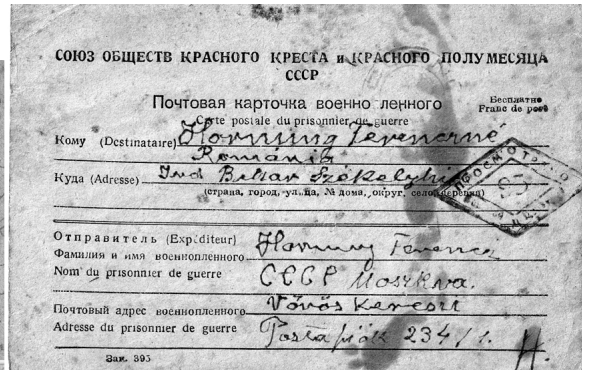 СОЮЗ ОБЩЕСТВ КРАСНОГО КРЕСТА и КРАСНОГО ПОЛУМЕСЯЦА
СССР
Почтовая карточка военно ленного
Бесплатно
Carte postale du prisonnier de guerre
Franc de port
Кому (Destinataire) Hornung Ferencné
Románia
Куда (Adresse) Jud Bihar Székelyhi
(страна, город, улица, № дома, округ, село, деревня)
ПРОСМОТРЕНО
Отправитель (Expéditeur) Hornung Ferenc
Фамилия и имя военнопленного
Nom du prisonnier de guerre СССР Moszkva.
Почтовый адрес военнопленного Vörös Kereszt
Adresse du prisonnier de guerre Postafiók 234/1.
Зак. 395